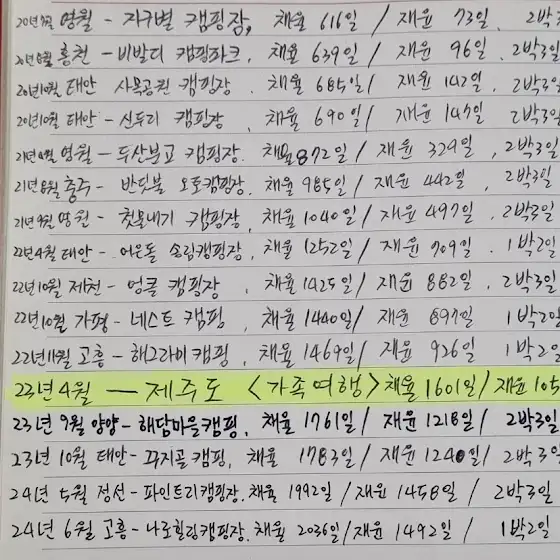 20년 7월 영월 - 지구별 캠핑장, 채율 616일 / 재윤 73일. 2박3
20년 8월 홍천 - 비발디 캠핑파크, 채율 639일 / 재윤 96일. 2박3일
20년10월 태안 사목공원 캠핑장, 채율 685일 / 재윤 142일. 2박3
20년10월 태안 - 신두리 캠핑장, 채율 690일 / 재윤 147일. 2박3
21년 4월 영월 - 두산분교 캠핑장. 채율 872일 / 재윤 329일, 2박3
21년 8월 충주 - 반딧불 오토캠핑장. 채율 985일 / 재윤 442일, 2박3일
21년 9월 영월 - 횃불내기 캠핑장, 채율 1040일 / 재윤 497일, 2박3일
22년 4월 태안 - 어은돌 송림캠핑장, 채율 1252일 / 재윤 709일. 1박2일
22년10월 제천 - 엉클 캠핑장, 채율 1425일 / 재윤 882일, 2박3일
22년10월 가평 - 네스트 캠핑, 채율 1440일 / 재윤 897일 1박2
22년11월 고흥 - 해그라이 캠핑, 채율 1469일 / 재윤 926일 1박2일
23년 4월 — 제주도 <가족여행> 채율 1601일 / 재윤 105
23년 9월 양양 - 해담마을캠핑. 채율 1761일 / 재윤 1218일 / 2박3일
23년 10월 태안 - 꾸지골캠핑, 채율 1783일 / 재윤 1240일 / 2박3일
24년 5월 정선 - 파인트리캠핑장. 채율 1992일 / 재윤 1458일 / 2박3일
24년 6월 고흥 - 나로힐링캠핑장. 채율 2036일 / 재윤 1492일 / 1박2일